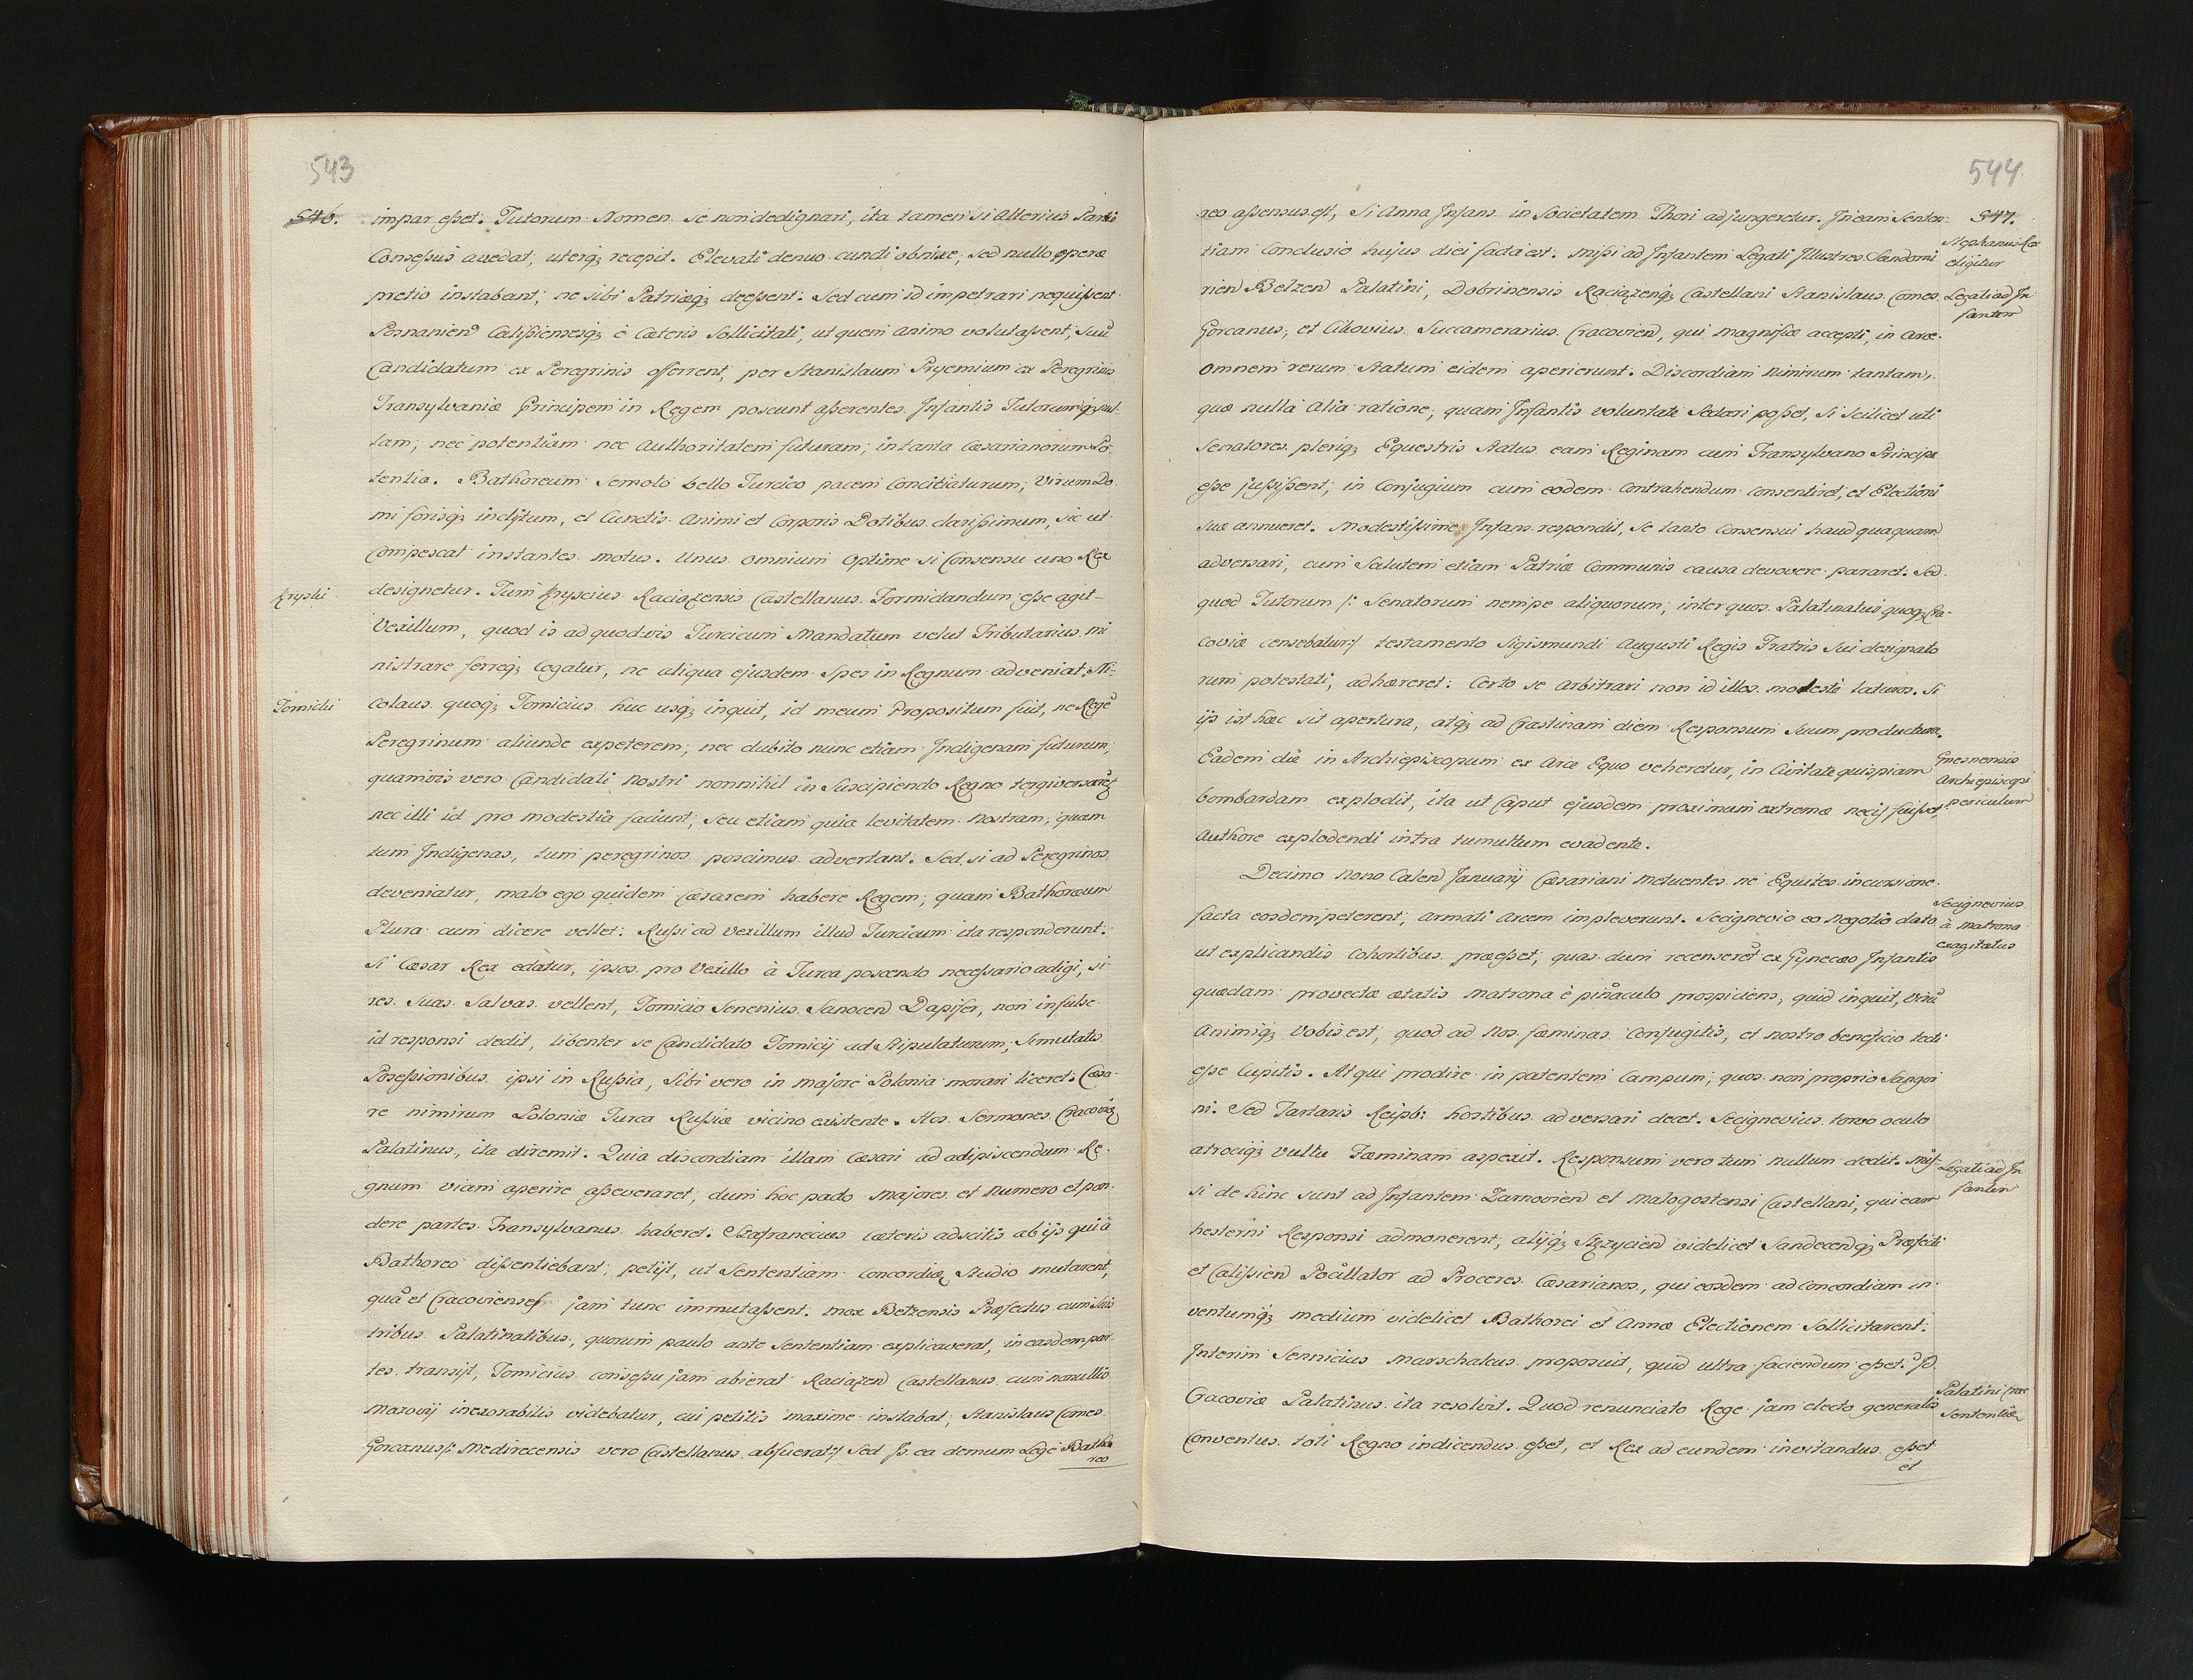 543
546.
impar esset. Tutorum Nomen se non dedignari, ita tamen si alterius Parti
Consessus accedat, uterq; recepit. Elevati denuo cuncti obnixe, sed nullo operæ
pretio instabant, ne sibi Patriæq; deessent. Sed cum id impetrari nequissent
Posnanien Calissiensesq; è Cæteris Sollicitati, ut quem animo volutassent, suũ
Candidatum ex Peregrinis offerrent, per Stanislaum Pryemium ex Peregrinis
Transylvaniæ Principem in Regem poscunt asserentes Infantis Tutorumq; nul-
lam, nec potentiam nec Authoritatem futuram, in tanta Cæsarianorum Po-
tentia. Bathoreum semoto bello Turcico pacem Conciliaturum, Virum Do
mi forisq; inclytum, et Cunctis Animi et Corporis Dotibus clarissimum, sic ut
Compescat instantes motus. Unus omnium optime si Consensu uno Rex
Kryski
designetur. Tum Kryscius Raciązensis Castellanus. Formidandum esse agit-
Vexillum, quod is ad quodvis Turcicum Mandatum velut Tributarius mi
nistrare ferreq; Cogatur, ne aliqua ejusdem Spes in Regnum adveniat, Ni-
Tomicki
colaus quoq; Tomicius huc usq; inquit, id meum Propositum fuit, ne Regẽ
Peregrinum aliunde expeterem, nec dubito nunc etiam Indigenam futurum,
quamvis vero Candidati nostri nonnihil in Suscipiendo Regno tergiversarẽt
nec illi id pro modestia faciunt, seu etiam quia levitatem nostram, quam
tum Indigenas, tum peregrinos poscimus advertant. Sed si ad Peregrinos
deveniatur, malo ego quidem Cæsarem habere Regem, quam Bathoreum
Plura cum dicere vellet. Russi ad Vexillum illud Turcicum ita responderunt.
Si Cæsar Rex edatur, ipsos pro Vexillo à Turca poscendo necessario adigi, si
res suas salvas vellent, Tomicio Senenius Sanocen Dapifer, non insulse
id responsi dedit, libenter se Candidato Tomicij ad Stipulaturum, se mutatis
Possessionibus ipsi in Russia, sibi vero in majore Polonia morari liceret. Cæsa-
re nimirum Poloniæ Turca Russiæ vicino existente. Hos Sermones Cracoviẽ
Palatinus, ita diremit. Quia discordiam illam Cæsari ad adipiscendum Re-
gnum viam aperire asseveraret, dum hoc pacto Majores et numero et pon-
dere partes Transylvanus haberet. Szafranecius Cæteris adscitis ab ijs qui â
Bathoreo dissentiebant, petijt, ut Sententiam Concordiæ Studio mutarent,
quã et Cracovienses jam tunc immutassent. Mox Betzensis Præfectus cum suis
tribus Palatinatibus, quorum paulo ante Sententiam explicaverat, in easdem par-
tes transijt, Tomicius Consessu jam abierat Raciązen Castellanus cum nonullis
Masovij inexorabilis videbatur, cui petitis maxime instabat, Stanislaus Comes
Gorcanus /: Medirecensis vero Castellanus abfuerat :/ Sed is ea demum Lege Batho
reo
544
547.
reo assensus est, Si Anna Infans in Societatem Thori adjungeretur. In eam Senten-
Stephanus Rex
eligitur
tiam Conclusio hujus diei facta est. Missi ad Infantem Legati Illustres Sandomi
Legati ad In-
fantem
rien Belzen Palatini, Dobrinensis Raciązenq; Castellani Stanislaus Comes
Gorcanus, et Cikovius Succamerarius Cracovien, qui magnifice accepti, in Arce
omnem rerum Statum eidem aperierunt. Discordiam nimirum tantam,
quæ nulla Alia ratione, quam Infantis voluntate Sedari posset, Si Scilicet uti
Senatores pleriq; Equestris Status eam Reginam cum Transylvano Principe
esse jussissent, in Conjugium cum eodem Contrahendum Consentiret, et Electioni
suæ annueret. Modestissime Infans respondit, Se tanto Consensui haud quaquam
adversari, cum Salutem etiam Patriæ Communis causa devovere pararet. Sed
quod Tutorum /: Senatorum nempe aliquorum, inter quos Palatinatus quoq; Cra-
coviæ censebatur :/ testamento Sigismundi Augusti Regis Fratris Sui designato
rum potestati, adhæreret. Certo se arbitrari non id illos modeste laturos. Si
ijs ist hæc sit apertura, atq; ad Crastinam diem Responsum suum producturæ.
Gnesnensis
Archiepiscopi
periculum
Eadem die in Archiepiscopum ex Arce Equo veheretur, in Civitate quispiam
bombardam explodit, ita ut Caput ejusdem proximum extremæ necis fuisset,
Authore explodendi intra tumultum evadente.
Decimo nono Calen Januarij Cæsariani Metuentes ne Equites incursione
Secignevius
à Matrona
exagitatus
facta eondem peterent, armati Arcem impleverunt. Secignevio eo Negotio dato
ut explicandis Cohortibus præesset, quas dum recenseret ex Gynecæo Infantis
quædam provectæ ætatis Matrona è pinaculo prospiciens, quid inquit, viriũ
Animiq; Vobis est, quod ad Nos fæminas Confugitis, et nostro beneficio tecti
esse Cupitis. Atqui prodire in patentem Campum, quos non proprio Sangvi
ni. Sed Tartaris Reipb: hostibus adversari decet. Secignevius torvo oculo
atrociq; vultu Fæminam aspexit. Responsum vero tum nullum dedit. Mis-
Legati ad In
fantem
si de hinc sunt ad Infantem Zarnovien et Malogostensi Castellani, qui eam
hesterni Responsi admonerent, alijq; Stęzycien videlicet Sandecenq; Præfecti
et Calissien Pocillator ad Proceres Cæsarianos, qui eosdem ad Concordiam in-
ventumq; medium videlicet Bathorei et Annæ Electionem Sollicitarent.
Interim Sennicius Marschalcus proposuit, quid ultra faciendum esset? Id
Palatini Crac
Sententia
Cracoviæ Palatinus ita resolvit. Quod renunciato Rege jam electo generalis
Conventus toti Regno indicendus esset, et Rex ad eundem invitandus esset
et